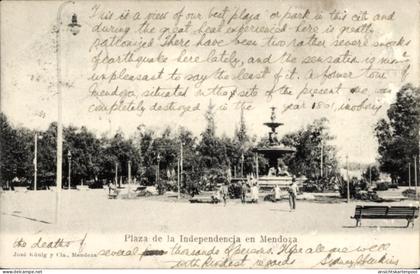 This is a view of our best plaza or park in this city and
during the great heat experienced here is greatly
patronized. There have been two rather severe shocks
of earthquake here lately, and the sensation is
unpleasant to say the least of it. A former town of
Mendoza, situated in the site of the present one, was
completely destroyed in the year 1861, involving
Plaza de la Independencia en Mendoza
José König y Cía., Mendoza
the death of several thousands of persons. Hope all are well
with kindest regards Sydney